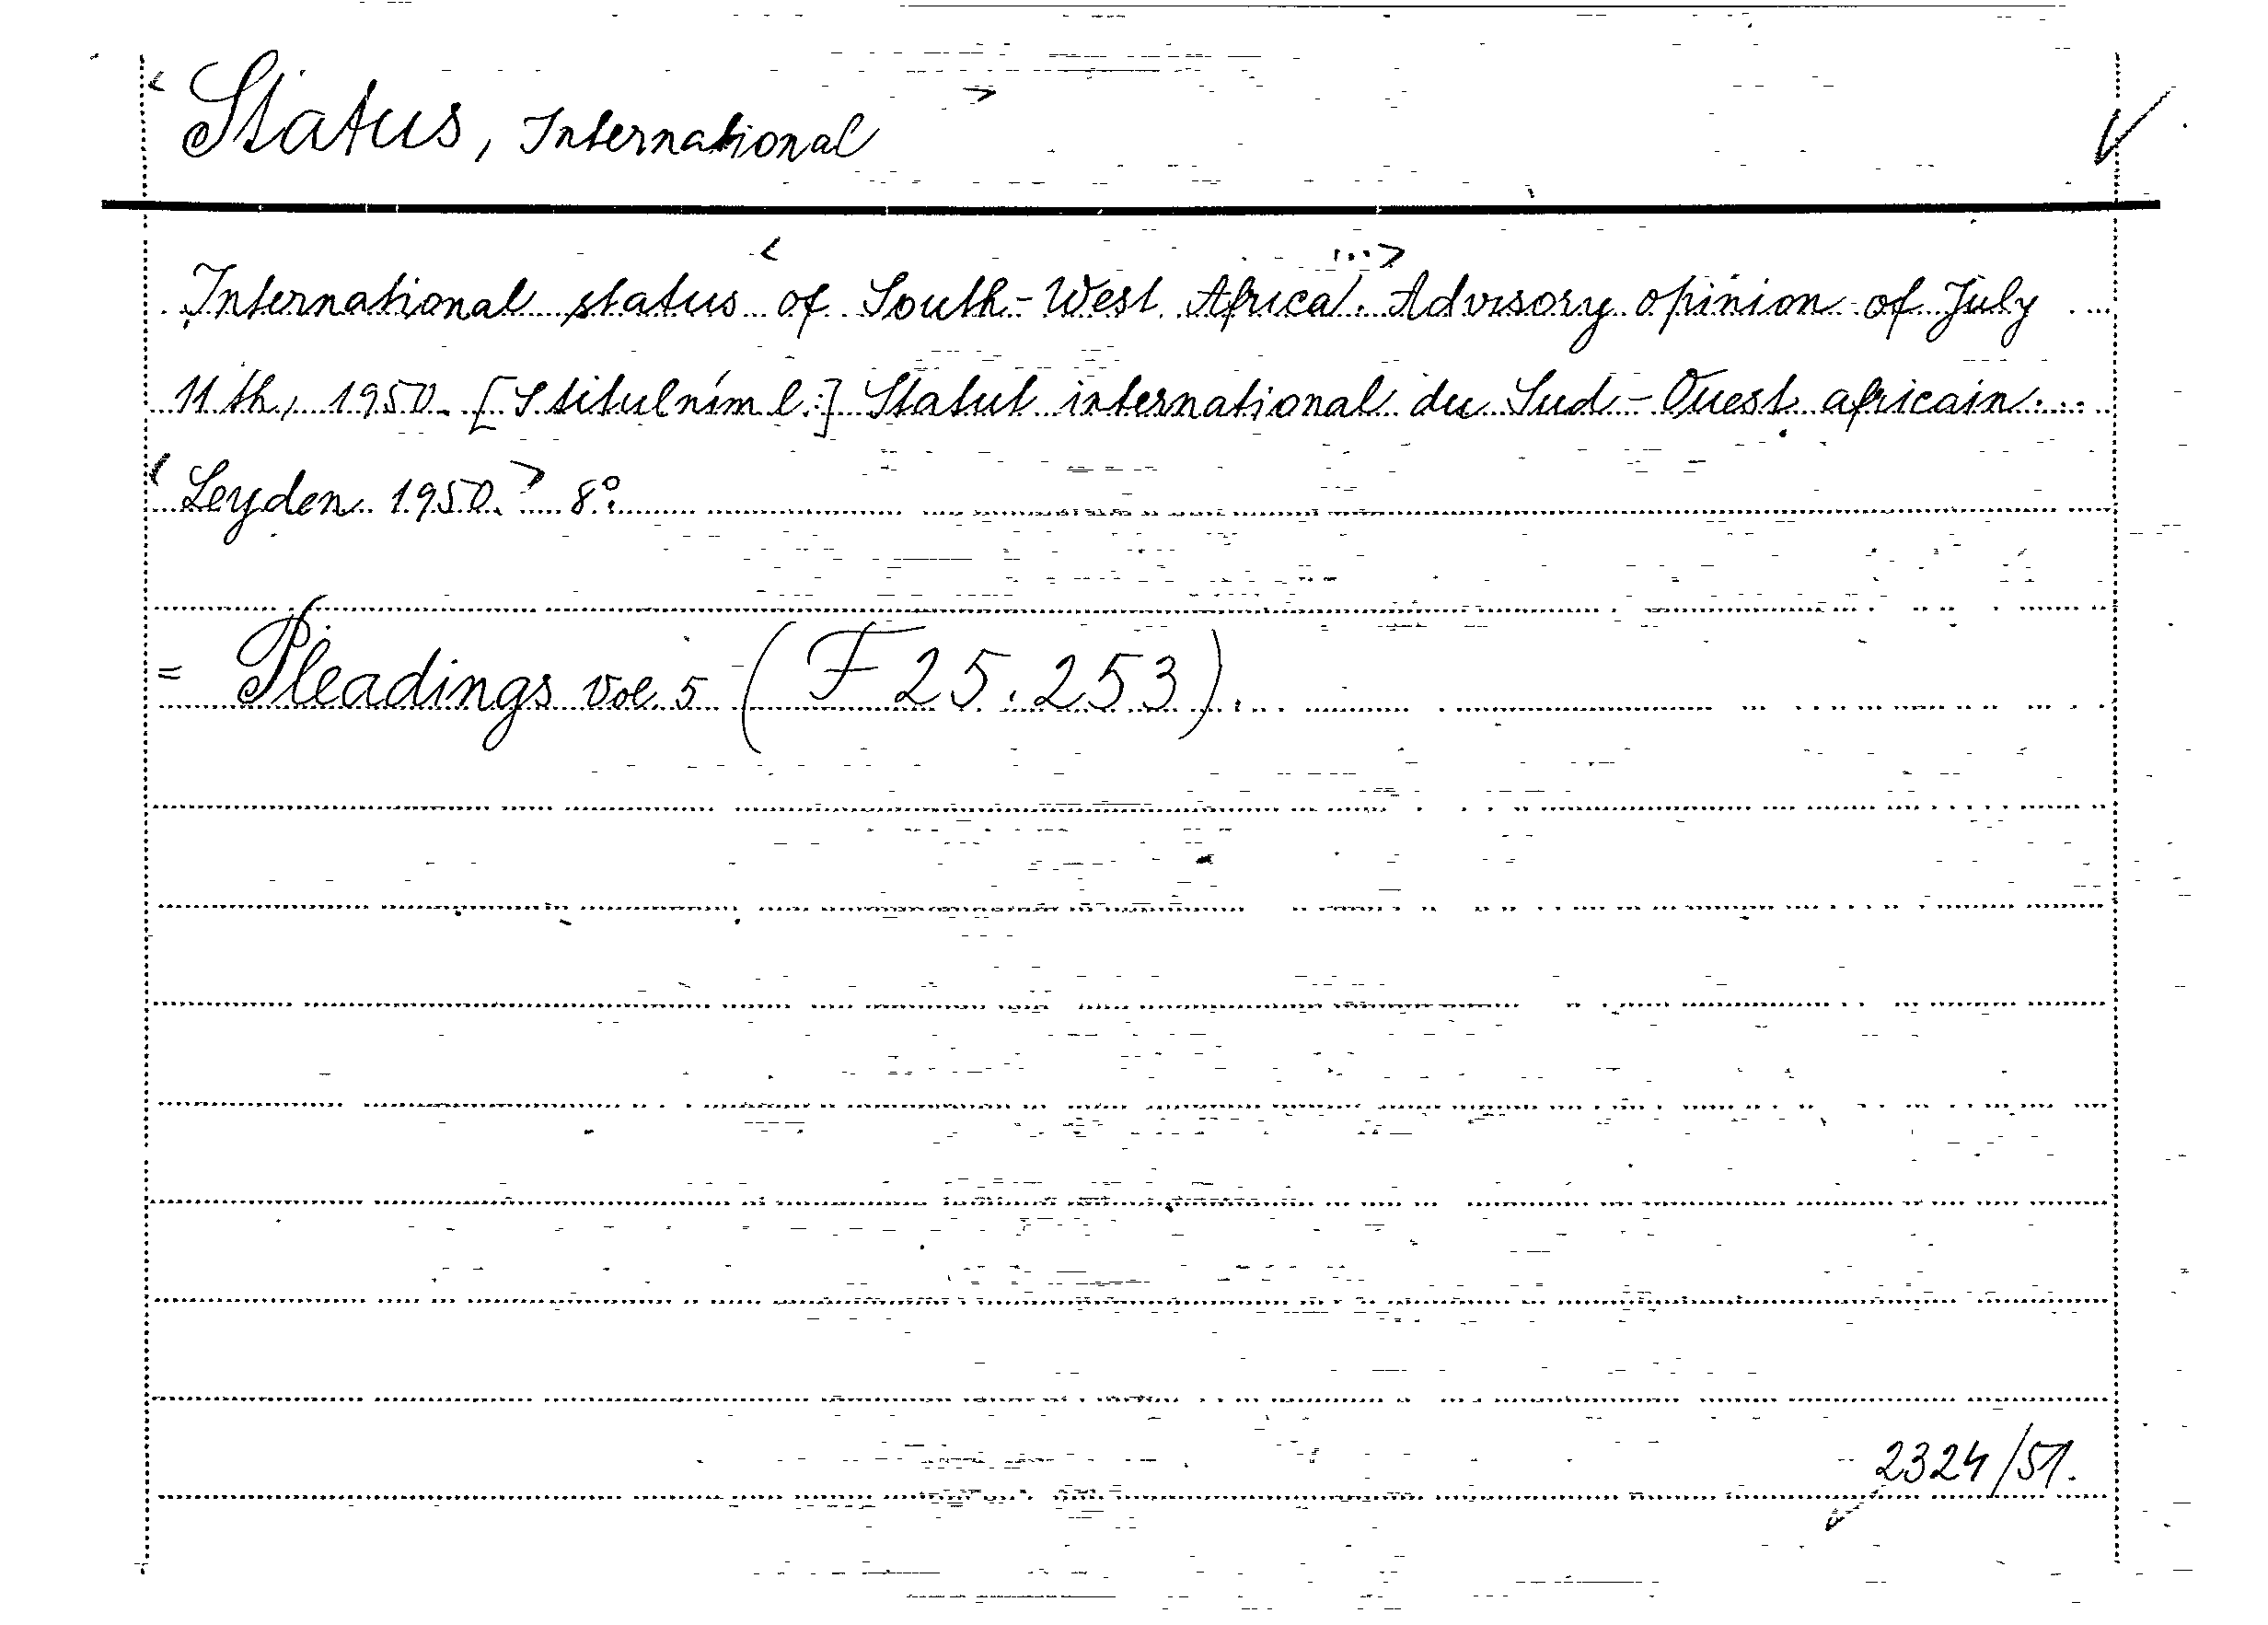 < Status, International >
International status < of South-West Africa ...>. Advisory opinion of July
11th, 1950. [S titulním l.:] Statut international du Sud-Ouest africain.
< Leyden 1950. > 8°.
= Pleadings vol. 5 (F 25.253).
2324/51.